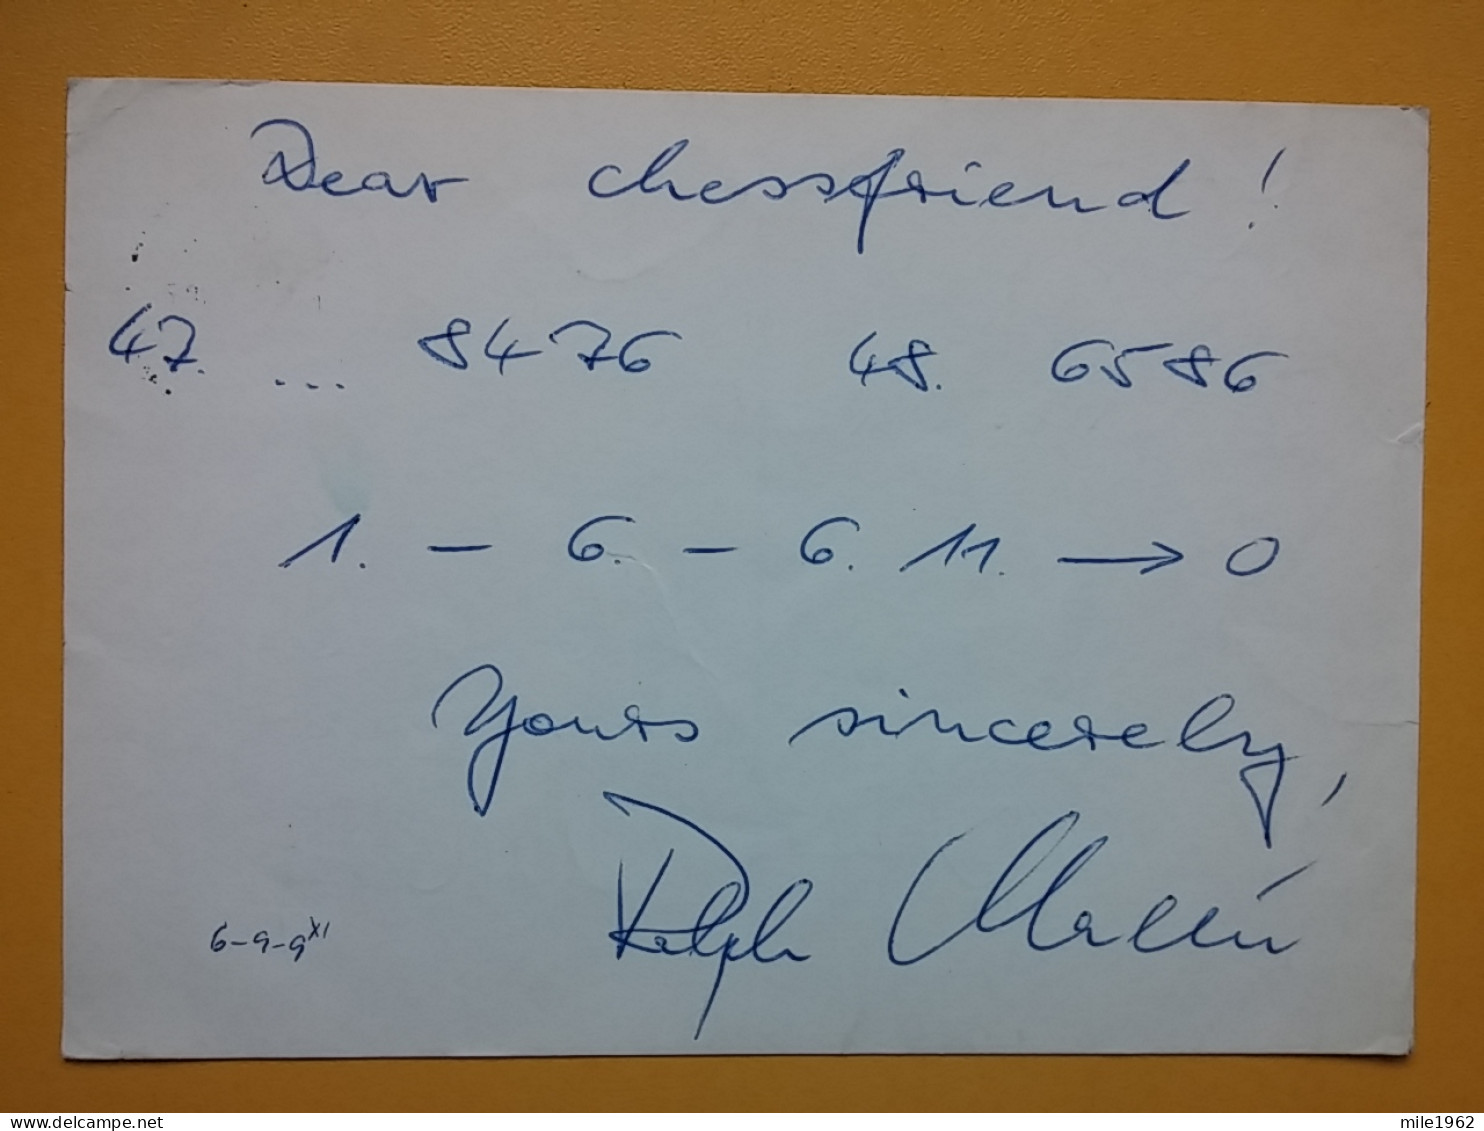 Dear chessfriend!
47. ... 8476 48. 6586
1. – 6. – 6. 11. → 0
Yours sincerely,
Ralph Mallée
6-9-9 XI
mile1962